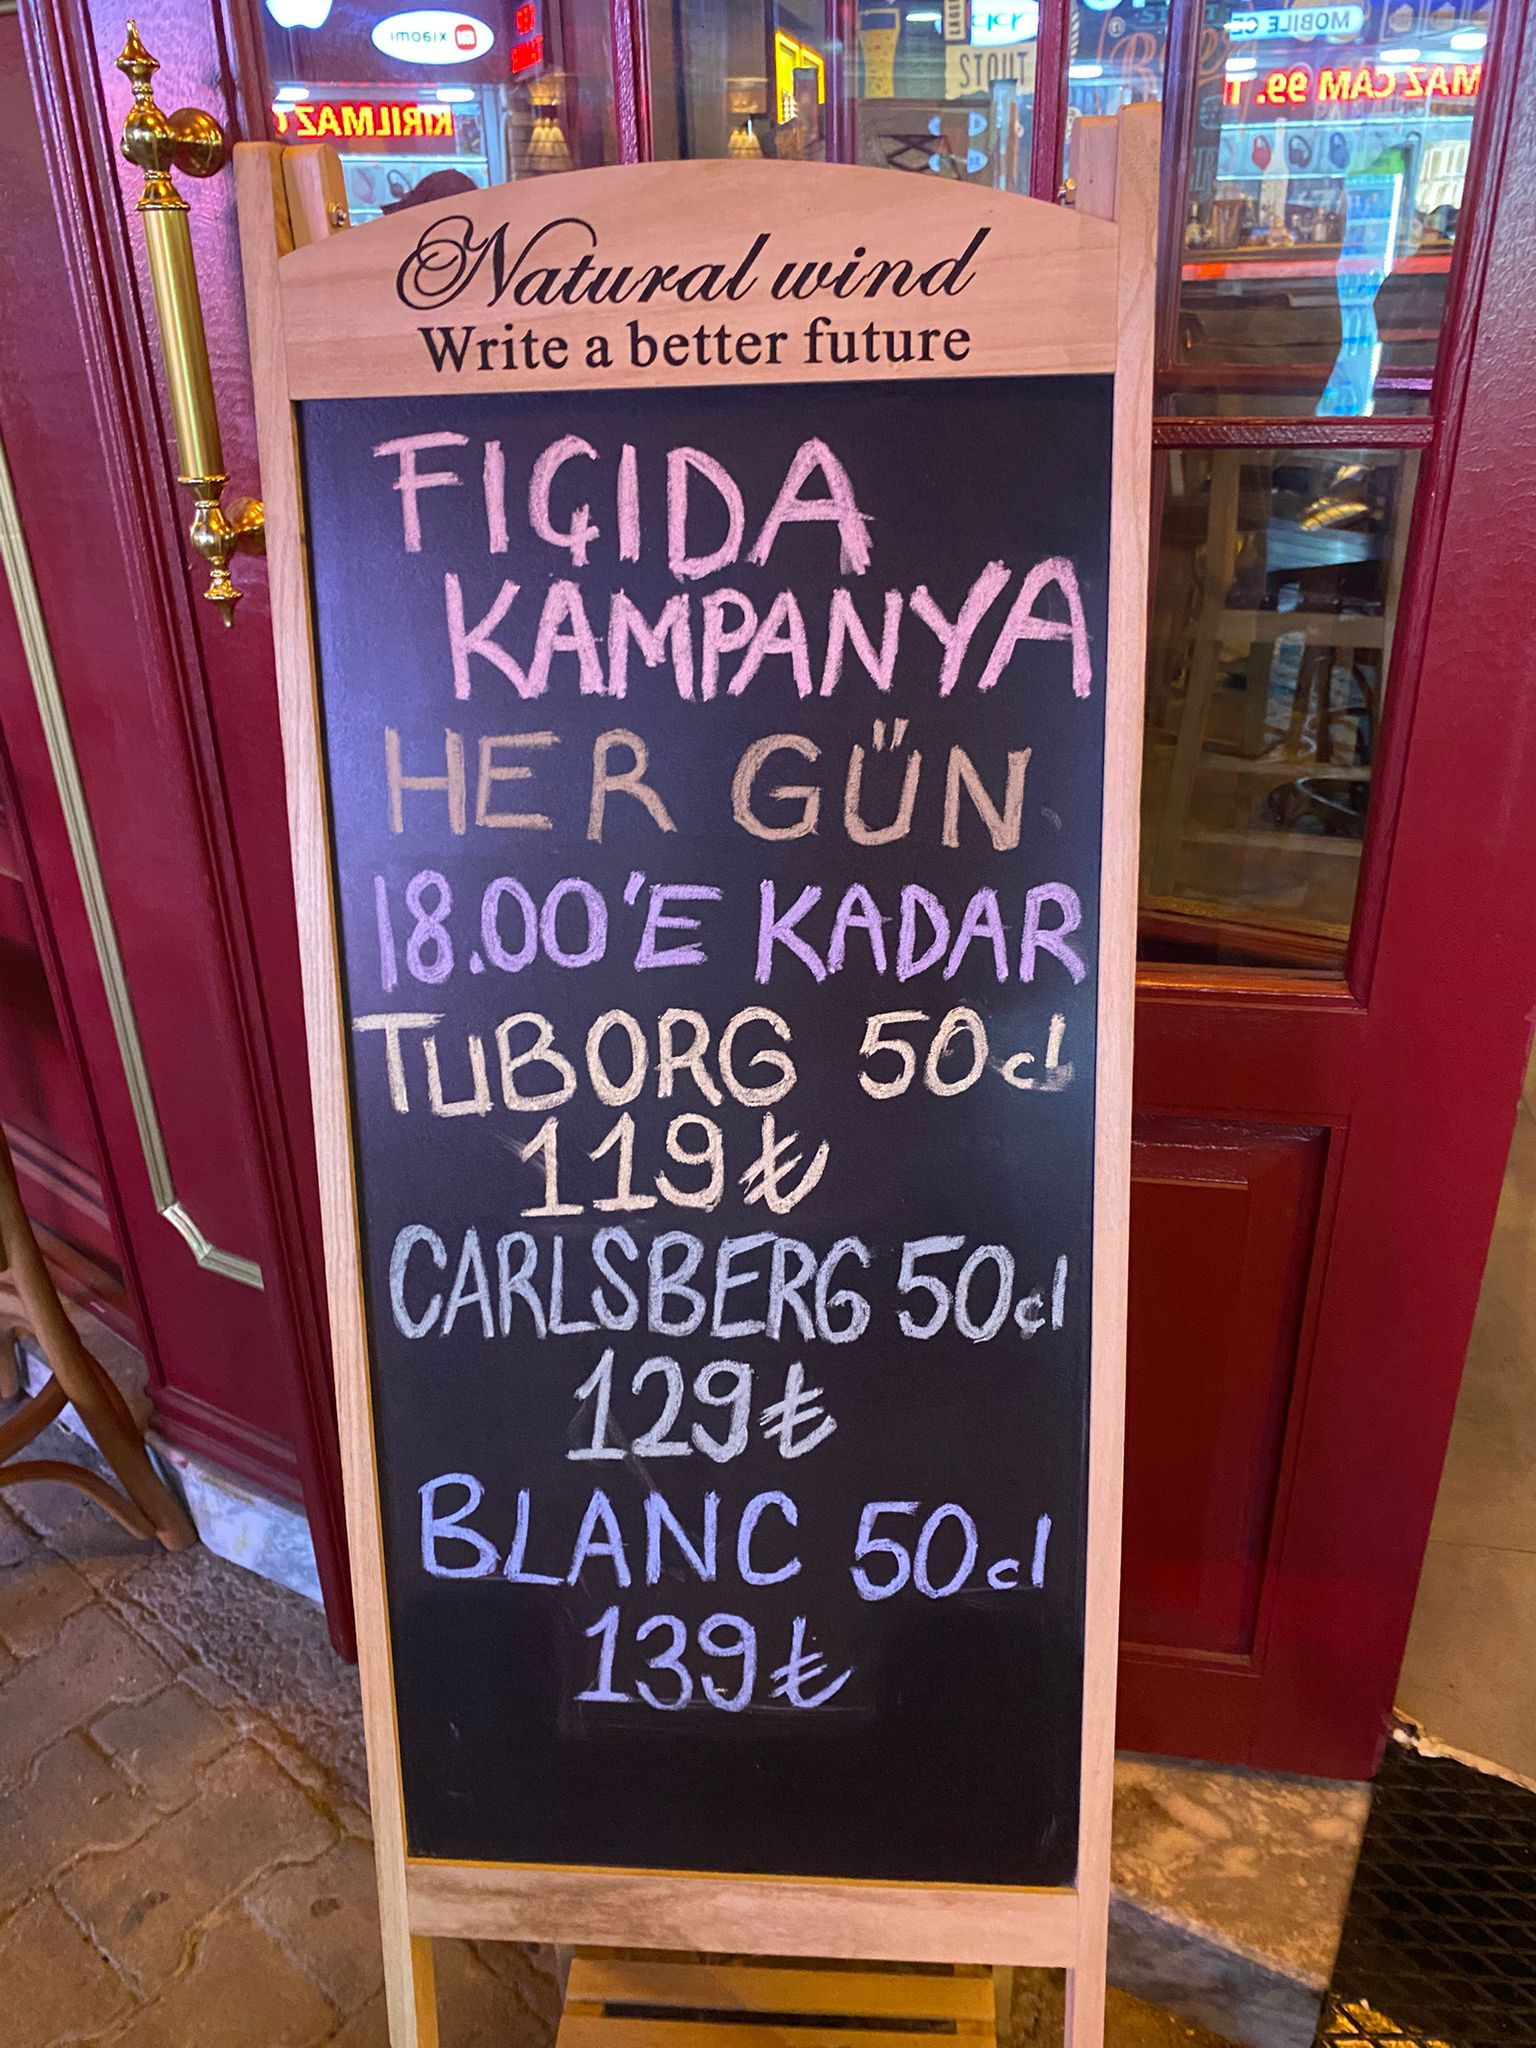 xiaomi
KIRILMAZ
STOUT
MOBILE
MAZ CAM 99. T
Natural wind
Write a better future
FIÇIDA
KAMPANYA
HER GÜN
18.00'E KADAR
TUBORG 50cl
119₺
CARLSBERG 50cl
129₺
BLANC 50cl
139₺